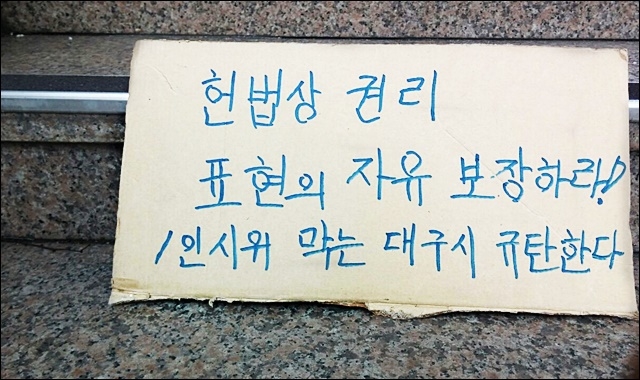 헌법상 권리
표현의 자유 보장하라!
1인시위 막는 대구시 규탄한다